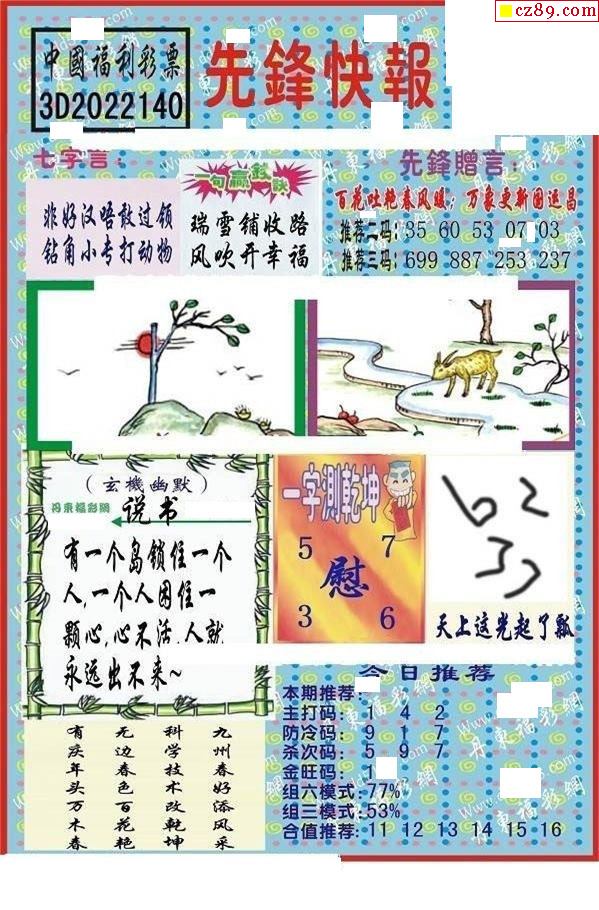 cz89.com
中國福利彩票
3D2022140
先鋒快報
七字言：
非好汉唔敢过领
钻角小专打动物
一句赢錢訣
瑞雪铺收路
风吹开幸福
先鋒贈言：
百花吐艳春风暖；万象更新国运昌
推荐二码：35 60 53 07 03
推荐三码：699 887 253 237
（玄機幽默）
丹東福彩網
说书
有一个岛锁住一个
人,一个人困住一
颗心,心不活,人就
永远出不来~
一字測乾坤
5 7
慰
3 6
天上这光起了瓢
今日推荐
本期推荐：
主打码：1 4 2
防冷码：9 1 7
杀次码：5 9 7
金旺码：1
组六模式：77%
组三模式：53%
合值推荐：11 12 13 14 15 16
九州春好添风采
科学技术改乾坤
无边春色百花艳
有庆年头万木春